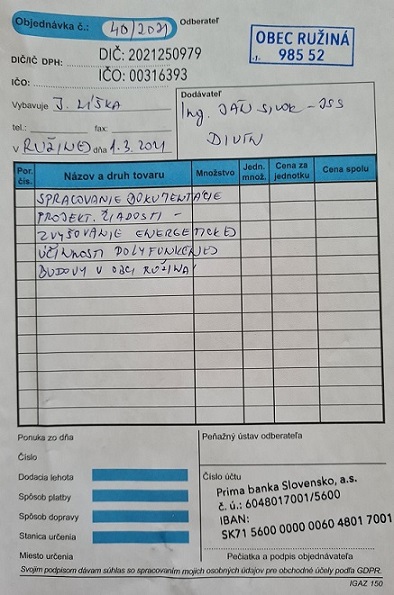 Objednávka č.: 40/2021
Odberateľ
OBEC RUŽINÁ
985 52
DIČ/IČ DPH: DIČ: 2021250979
IČO: IČO: 00316393
Vybavuje J. LÍŠKA
tel.: fax:
V RUŽINEJ dňa 1.3.2021
Dodávateľ
Ing. JÁN SIVOK - JSS
DIVÍN
Por. čís. Názov a druh tovaru Množstvo Jedn. množ. Cena za jednotku Cena spolu
SPRACOVANIE DOKUMENTÁCIE
PROJEKT. ŽIADOSTI -
ZVYŠOVANIE ENERGETICKEJ
ÚČINNOSTI POLYFUNKČNEJ
BUDOVY V OBCI RUŽINÁ
Ponuka zo dňa
Číslo
Dodacia lehota
Spôsob platby
Spôsob dopravy
Stanica určenia
Miesto určenia
Peňažný ústav odberateľa
Číslo účtu
Prima banka Slovensko, a.s.
č. ú.: 6048017001/5600
IBAN:
SK71 5600 0000 0060 4801 7001
Pečiatka a podpis objednávateľa
Svojím podpisom dávam súhlas so spracovaním mojich osobných údajov pre obchodné účely podľa GDPR.
IGAZ 150